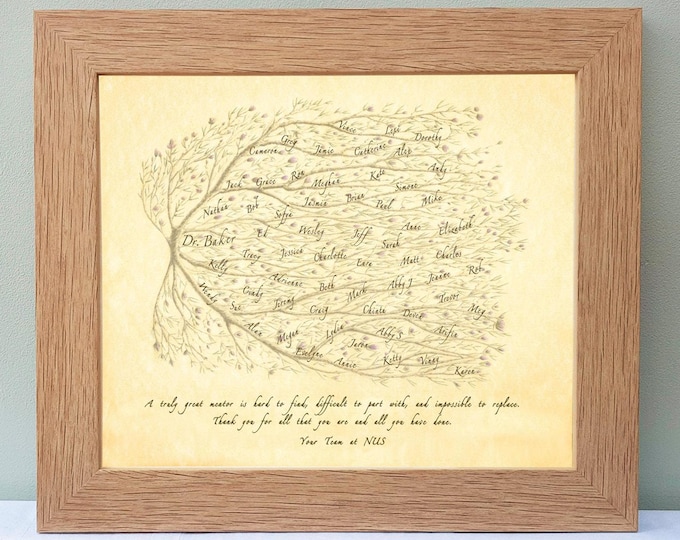 Vince Lisa Dorothy
Greg
Cameron Jamie Catherine Alex
Jack Grace Ron Meghan Kate Andy
Simone
Nathan Bob Sofia Jasmin Brian Paul Mike
Dr. Baker Ed Wesley Jeff Anne Elizabeth
Sarah
Kelly Tracy Jessica Charlotte Matt Charles
Wendy Adrienne Beth Abby J Joanne Rob
Sue Cindy Jeremy Craig Mark Devon Trevor Meg
Alan Megan Lydia Abby S
Evelyne Annie Jason Kelly Vinny Karen
A truly great mentor is hard to find, difficult to part with, and impossible to replace.
Thank you for all that you are and all you have done.
Your Team at NUS